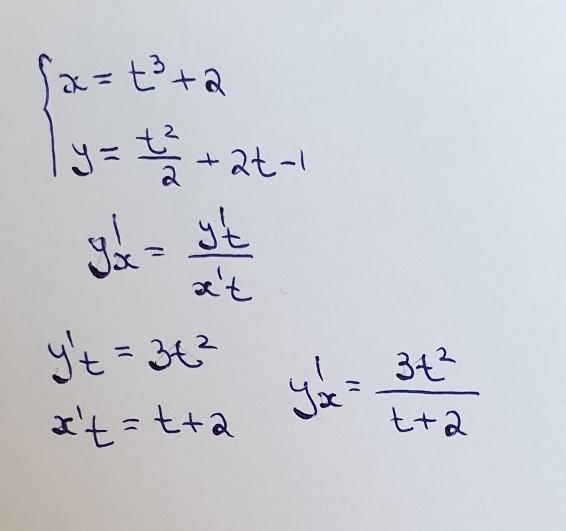 x = t³ + 2
y = t²/2 + 2t - 1
y'x = y't/x't
y't = 3t²
x't = t + 2
y'x = 3t²/(t + 2)